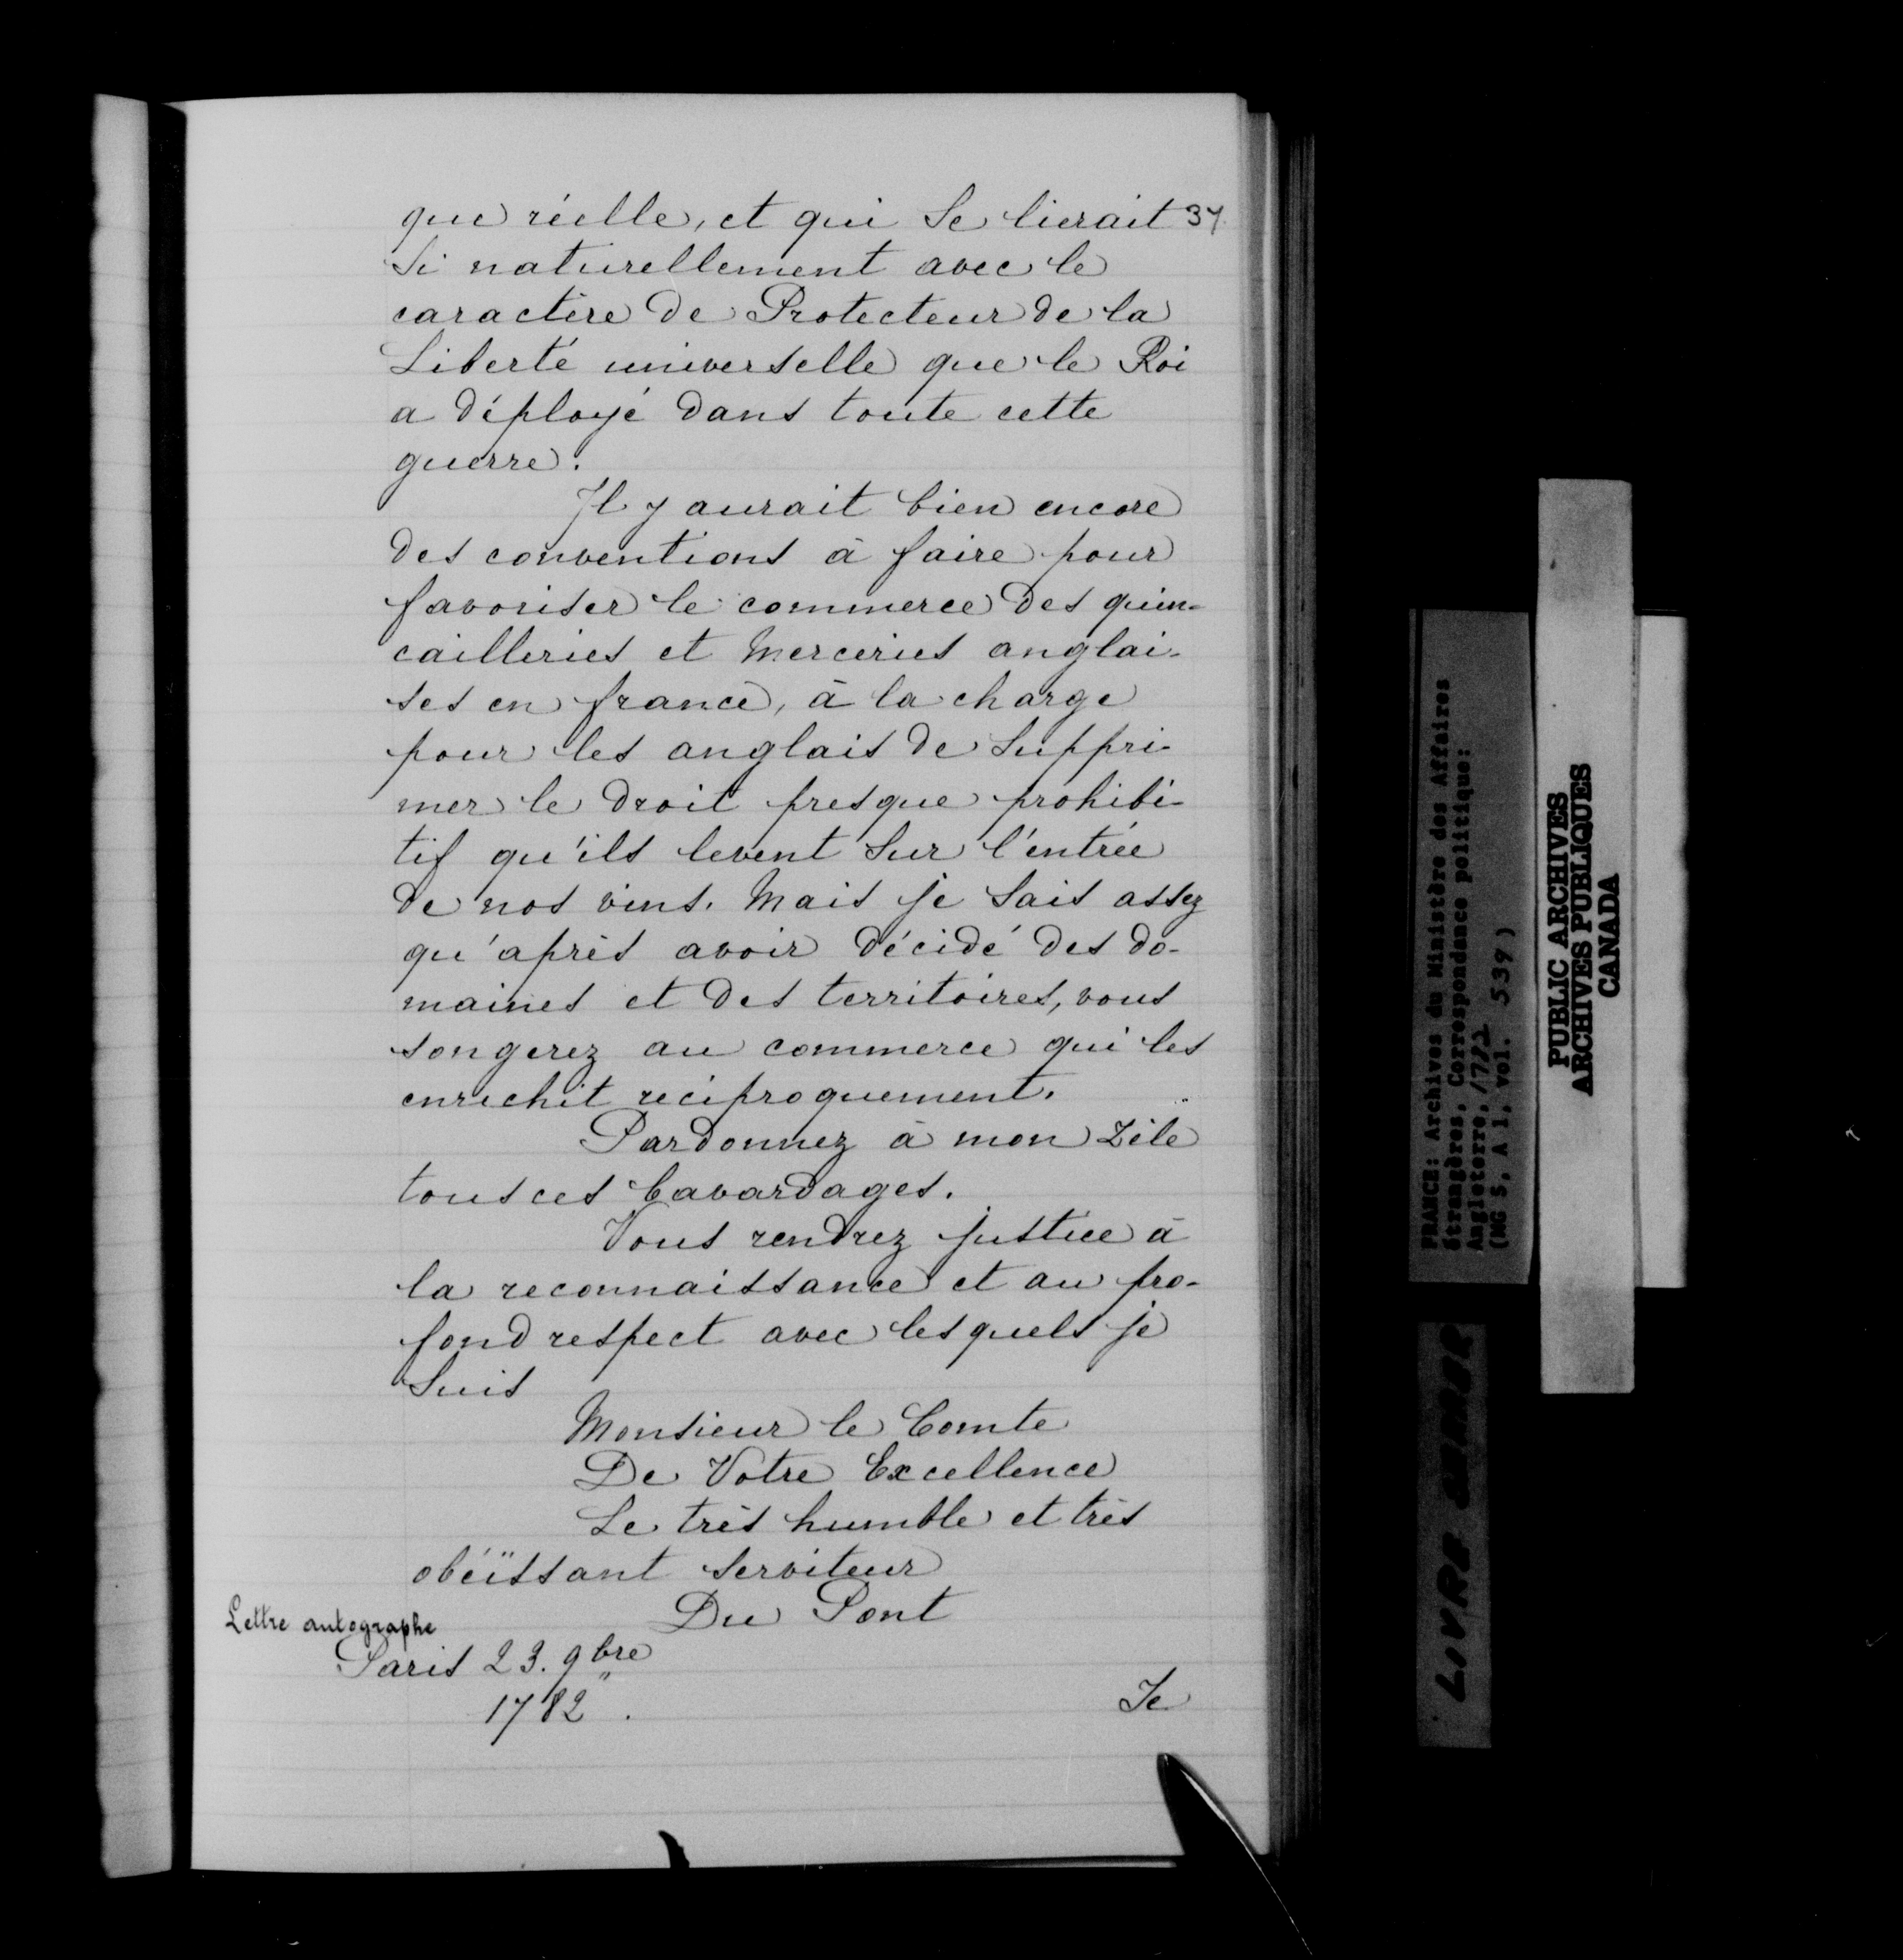 que réelle, et qui Se lierait 37
Si naturellement avec le
caractère de Protecteur de la
Liberté universelle que le Roi
a déployé dans toute cette
guerre.
Il y aurait bien encore
des conventions à faire pour
favoriser le commerce des quin-
cailleries et Merceries anglai-
ses en france, à la charge
pour les anglais de Suppri-
mer le droit presque prohibi-
tif qu'ils levent Sur l'entrée
de nos vins. Mais je Sais assez
qu'après avoir décidé des do-
maines et des territoires, vous
songerez au commerce qui les
enrichit reciproquement.
Pardonnez à mon Zèle
tous ces bavardages.
Vous rendrez justice à
la reconnaissance et au pro-
fond respect avec lesquels je
Suis
Monsieur le Comte
De Votre Excellence
Le très humble et très
obéïssant Serviteur
Du Pont
Lettre autographe
Paris 23. 9bre
1782.
Je
FRANCE: Archives du Ministère des Affaires
étrangères, Correspondance politique:
Angleterre, 1782
(MG 5, A 1, vol. 539)
PUBLIC ARCHIVES
ARCHIVES PUBLIQUES
CANADA
LIVRE